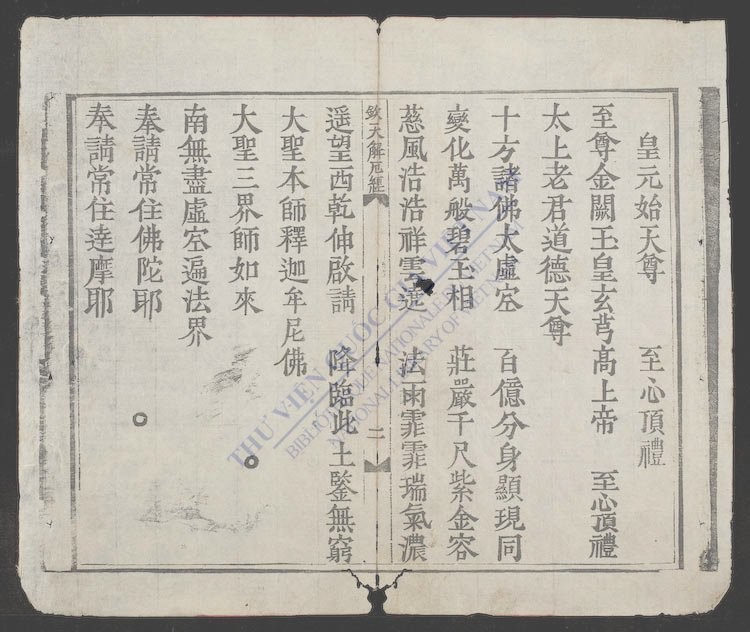 皇元始天尊　至心頂禮
至尊金闕玉皇玄芎高上帝　至心頂禮
太上老君道德天尊
十方諸佛太虛空　百億分身顯現同
變化萬般碧玉相　莊嚴千尺紫金容
慈風浩浩祥雲遶　法雨霏霏瑞氣濃
欽天解厄經　二
遥望西乾伸啟請　降臨此土鑒無窮
大聖本師釋迦牟尼佛
大聖三界師如來
南無盡虛空遍法界
奉請常住佛陀耶
奉請常住達摩耶
THƯ VIỆN QUỐC GIA VIỆT NAM
BIBLIOTHÈQUE NATIONALE DU VIETNAM
NATIONAL LIBRARY OF VIETNAM